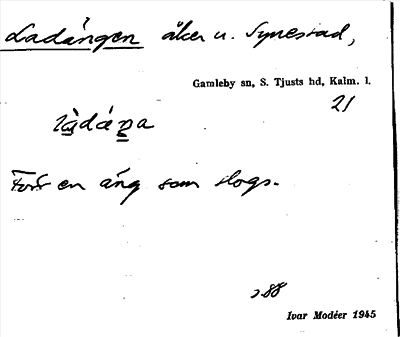 Ladängen åker u. Synestad,
Gamleby sn, S. Tjusts hd, Kalm. l.
21
en äng som slogs.
Ivar Modéer 1945